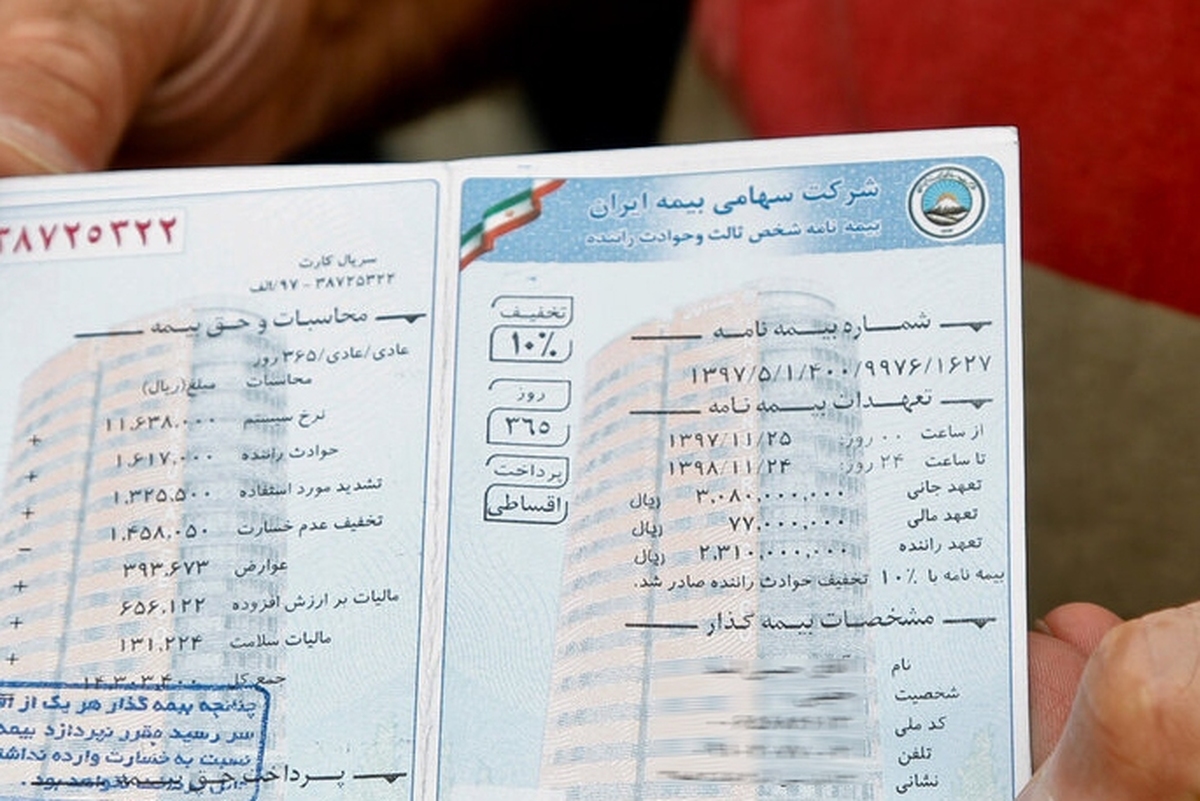 شرکت سهامی بیمه ایران
بیمه نامه شخص ثالث وحوادث راننده
تخفیف
۱۰٪
روز
۳۶۵
پرداخت
اقساطی
شماره بیمه نامه
۱۳۹۷/۵/۱/۴۰۰/۹۹۷۶/۱۶۲۷
تعهدات بیمه نامه
از ساعت ۰۰ روز: ۱۳۹۷/۱۱/۲۵
تا ساعت ۲۴ روز: ۱۳۹۸/۱۱/۲۴
تعهد جانی ۳,۰۸۰,۰۰۰,۰۰۰ ریال
تعهد مالی ۷۷,۰۰۰,۰۰۰ ریال
تعهد راننده ۲,۳۱۰,۰۰۰,۰۰۰ ریال
بیمه نامه با ۱۰٪ تخفیف حوادث راننده صادر شد.
مشخصات بیمه گذار
نام
شخصیت
کد ملی
تلفن
نشانی
۳۸۷۲۵۳۲۲
سریال کارت
۳۸۷۲۵۳۲۲ - ۹۷/الف
محاسبات و حق بیمه
عادی/عادی/۳۶۵ روز
محاسبات مبلغ(ریال)
نرخ سیستم ۱۱,۶۳۸,۰۰۰
حوادث راننده ۱,۶۱۷,۰۰۰ +
تشدید مورد استفاده ۱,۳۲۵,۵۰۰ +
تخفیف عدم خسارت ۱,۴۵۸,۰۵۰ +
عوارض ۳۹۳,۶۷۳ −
مالیات بر ارزش افزوده ۶۵۶,۱۲۲ +
مالیات سلامت ۱۳۱,۲۲۴ +
جمع کل ۱۴,۳۰۳,۴۰۰ +
چنانچه بیمه گذار هر یک از
سر رسید مقرر نپردازد بیمه
نسبت به خسارت وارده
پرداخت حق بیمه